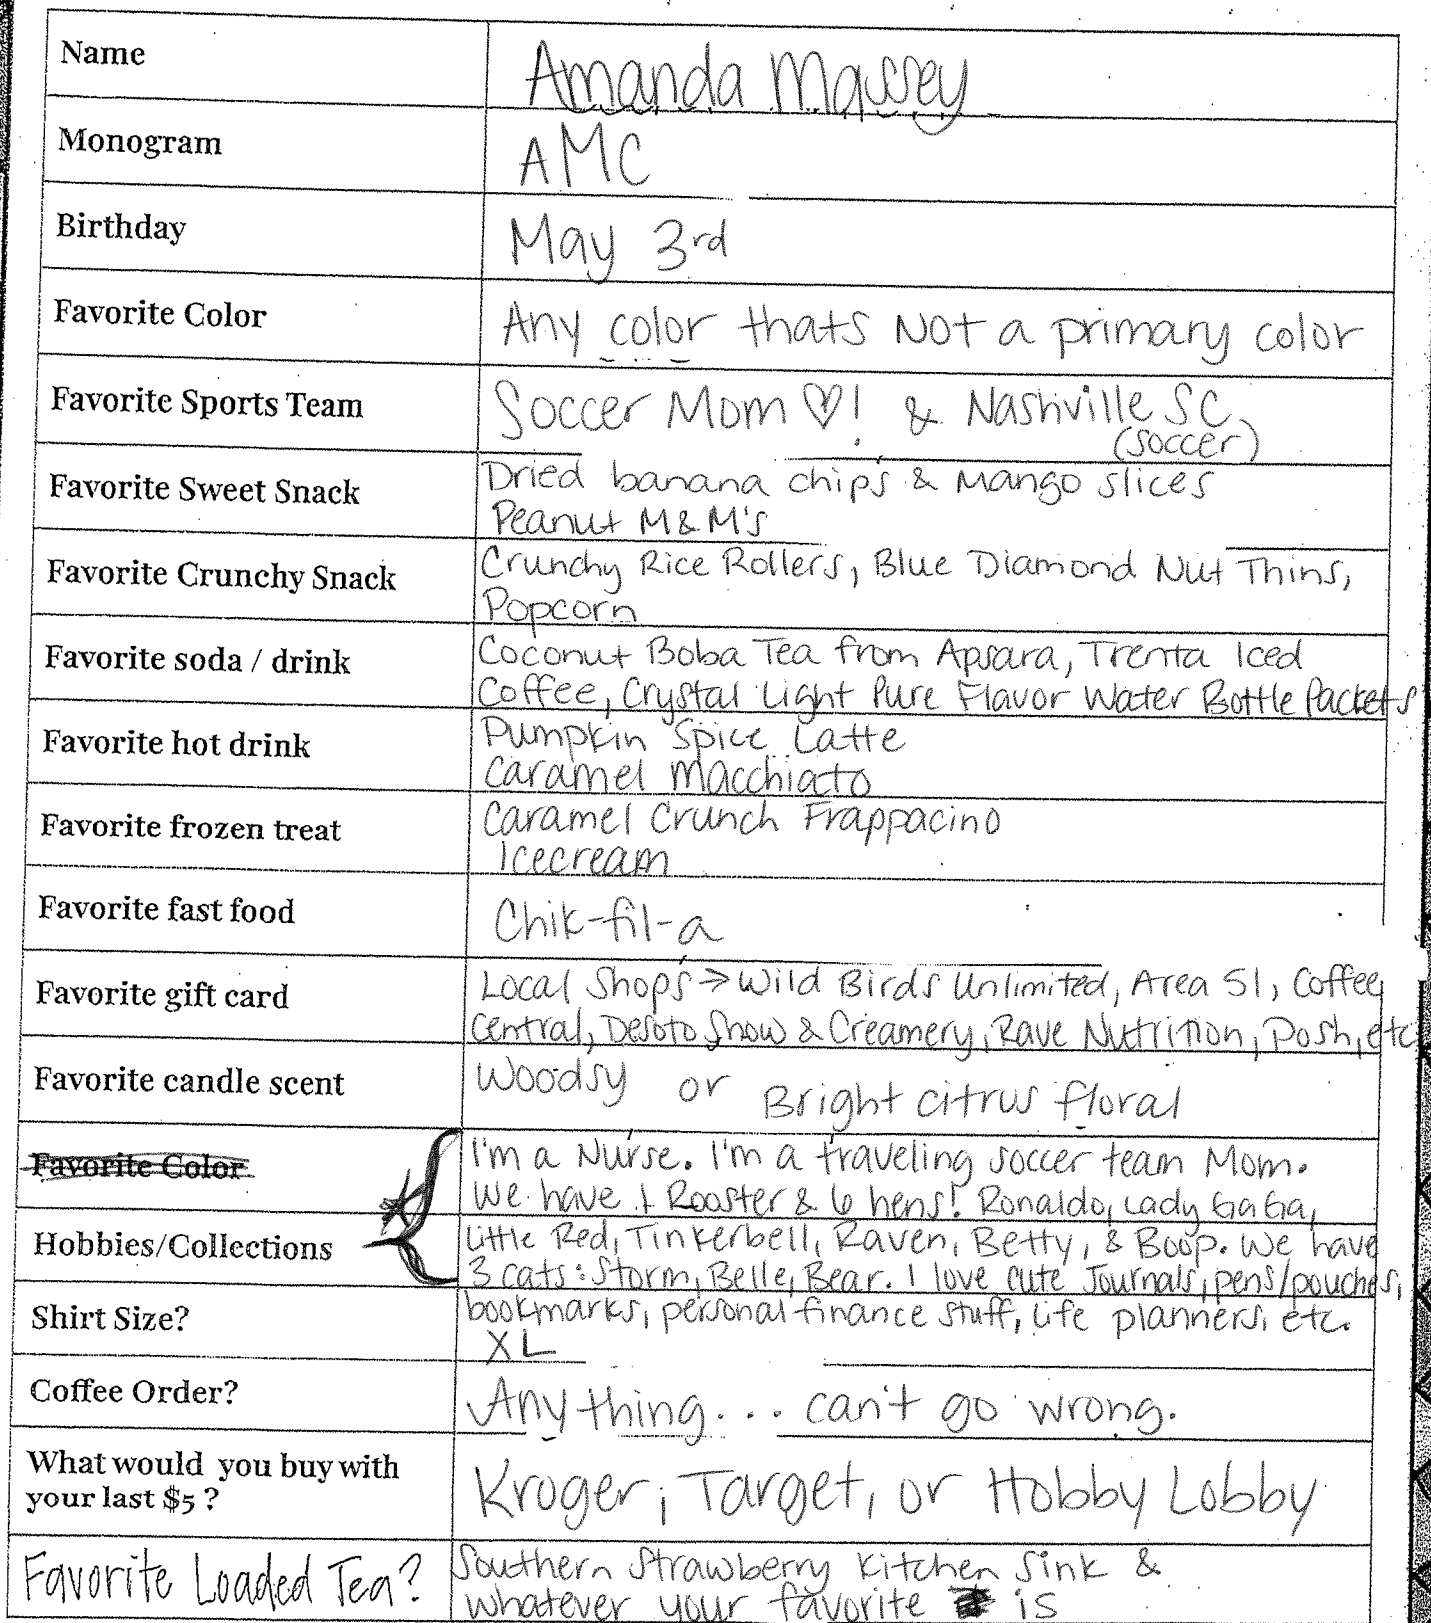 Name Amanda Massey
Monogram AMC
Birthday May 3rd
Favorite Color Any color thats NOT a primary color
Favorite Sports Team Soccer Mom ♡! & Nashville SC
(soccer)
Favorite Sweet Snack Dried banana chips & Mango slices
Peanut M&M's
Favorite Crunchy Snack Crunchy Rice Rollers, Blue Diamond Nut Thins,
Popcorn
Favorite soda / drink Coconut Boba Tea from Apsara, Trenta Iced
Coffee, Crystal Light Pure Flavor Water Bottle Packets
Favorite hot drink Pumpkin Spice Latte
Caramel Macchiato
Favorite frozen treat Caramel Crunch Frappacino
Icecream
Favorite fast food Chik-fil-a
Favorite gift card Local Shops → Wild Birds Unlimited, Area 51, Coffee
Central, Desoto Snow & Creamery, Rave Nutrition, Posh, etc
Favorite candle scent Woodsy or Bright citrus floral
Favorite Color I'm a Nurse. I'm a traveling soccer team Mom.
We have 1 Rooster & 6 hens! Ronaldo, Lady GaGa,
Hobbies/Collections Little Red, Tinkerbell, Raven, Betty, & Boop. We have
3 cats: Storm, Belle, Bear. I love cute Journals, pens/pouches,
Shirt Size? bookmarks, personal finance stuff, life planners, etc.
XL
Coffee Order? Anything... can't go wrong.
What would you buy with
your last $5 ? Kroger, Target, or Hobby Lobby
Favorite Loaded Tea? Southern Strawberry Kitchen Sink &
whatever your favorite is